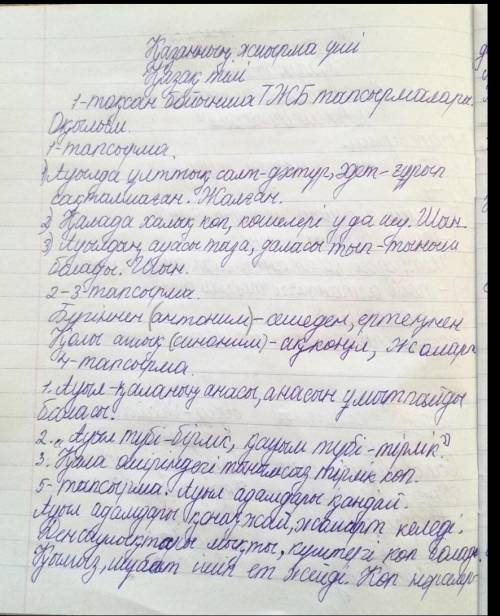 Қазанның жиырма үші
Қазақ тілі
1-тоқсан бойынша ТЖБ тапсырмалары
Оқылым.
1-тапсырма.
1) Ауылда ұлттық салт-дәстүр, әдет-ғұрып
сақталмаған. Жалған.
2) Қалада халық көп, көшелері у да шу. Шын.
3) Ауылдың ауасы таза, даласы тып-тыныш
болады. Шын.
2-3-тапсырма.
Бүгіннен (антоним)-кешеден, ертеңнен
Қолы ашық (синоним)- ақкөңіл, жомарт
4-тапсырма.
1. Ауыл-қаланың анасы, анасын ұмытпайды
баласы.
2. „Ауыл түбі-бірлік, қауым түбі-тірлік."
3. Қала өміріндегі тынымсыз тірлік көп.
5-тапсырма. Ауыл адамдары қандай.
Ауыл адамдары қонақжай, жомарт келеді.
Денсаулықтары мықты, күштері көп болады.
Қымыз, шұбат ішіп ет жейді. Көп нәрселер